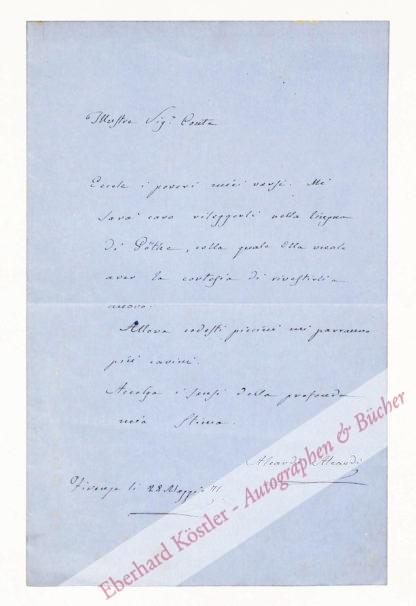 Illustre Sig.r Conte
Eccole i poveri miei versi. Mi
sarà caro rileggerli nella lingua
di Göthe, colla quale Ella vuole
aver la cortesia di rivestirli a
nuovo.
Allora codesti piccini mi parranno
più carini.
Accolga i sensi della profonda
mia stima.
Aleardo Aleardi
Firenze li 28 Maggio 71
Eberhard Köstler - Autographen & Bücher